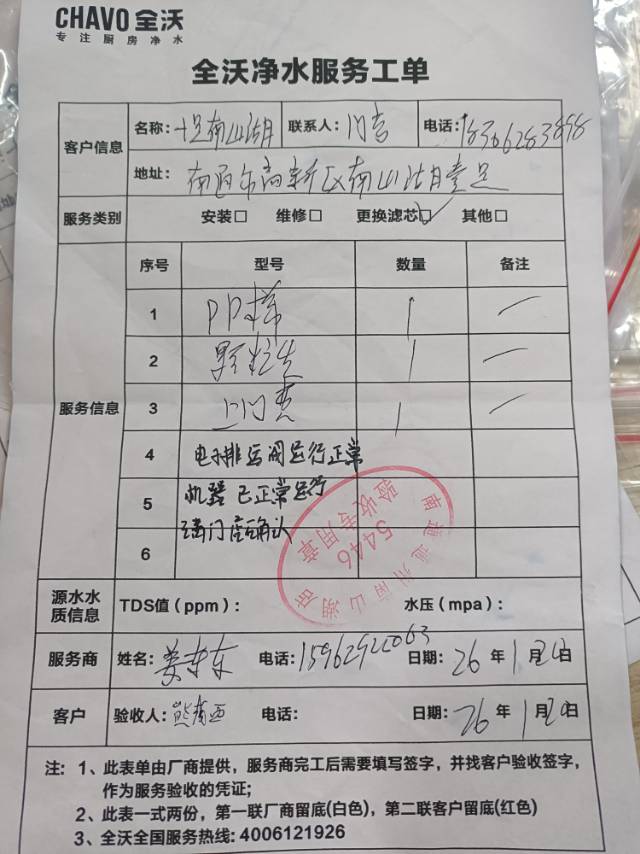 CHAVO 全沃
专注厨房净水
全沃净水服务工单
客户信息 名称: 南山湖 联系人: 电话: 18306283898
地址: 高新区南山湖壹
服务类别 安装□ 维修□ 更换滤芯□ 其他□
服务信息 序号 型号 数量 备注
1 PP棉 1 —
2 颗粒 1 —
3 上门费 1 —
4 电子排 阀运行正常
5 机器已正常运行
6 请门店确认
南通通州南山湖店
5446
验收专用章
源水水质信息 TDS值(ppm): 水压(mpa):
服务商 姓名: 电话: 日期: 26 年 1 月 20 日
客户 验收人: 熊 西 电话: 日期: 26 年 1 月 20 日
注: 1、此表单由厂商提供,服务商完工后需要填写签字,并找客户验收签字,
作为服务验收的凭证;
2、此表一式两份,第一联厂商留底(白色),第二联客户留底(红色)
3、全沃全国服务热线: 4006121926